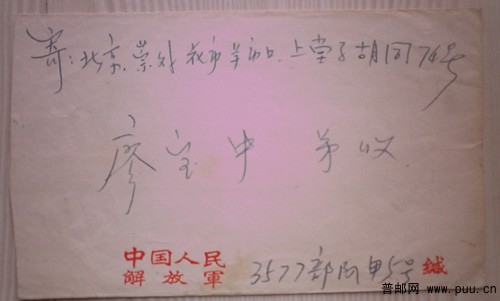 寄:北京.崇外花市羊市口.上堂子胡同74号
廖宝中 弟收.
中国人民
解放軍 3577部队 5号 缄
普邮网 www.puu.cn